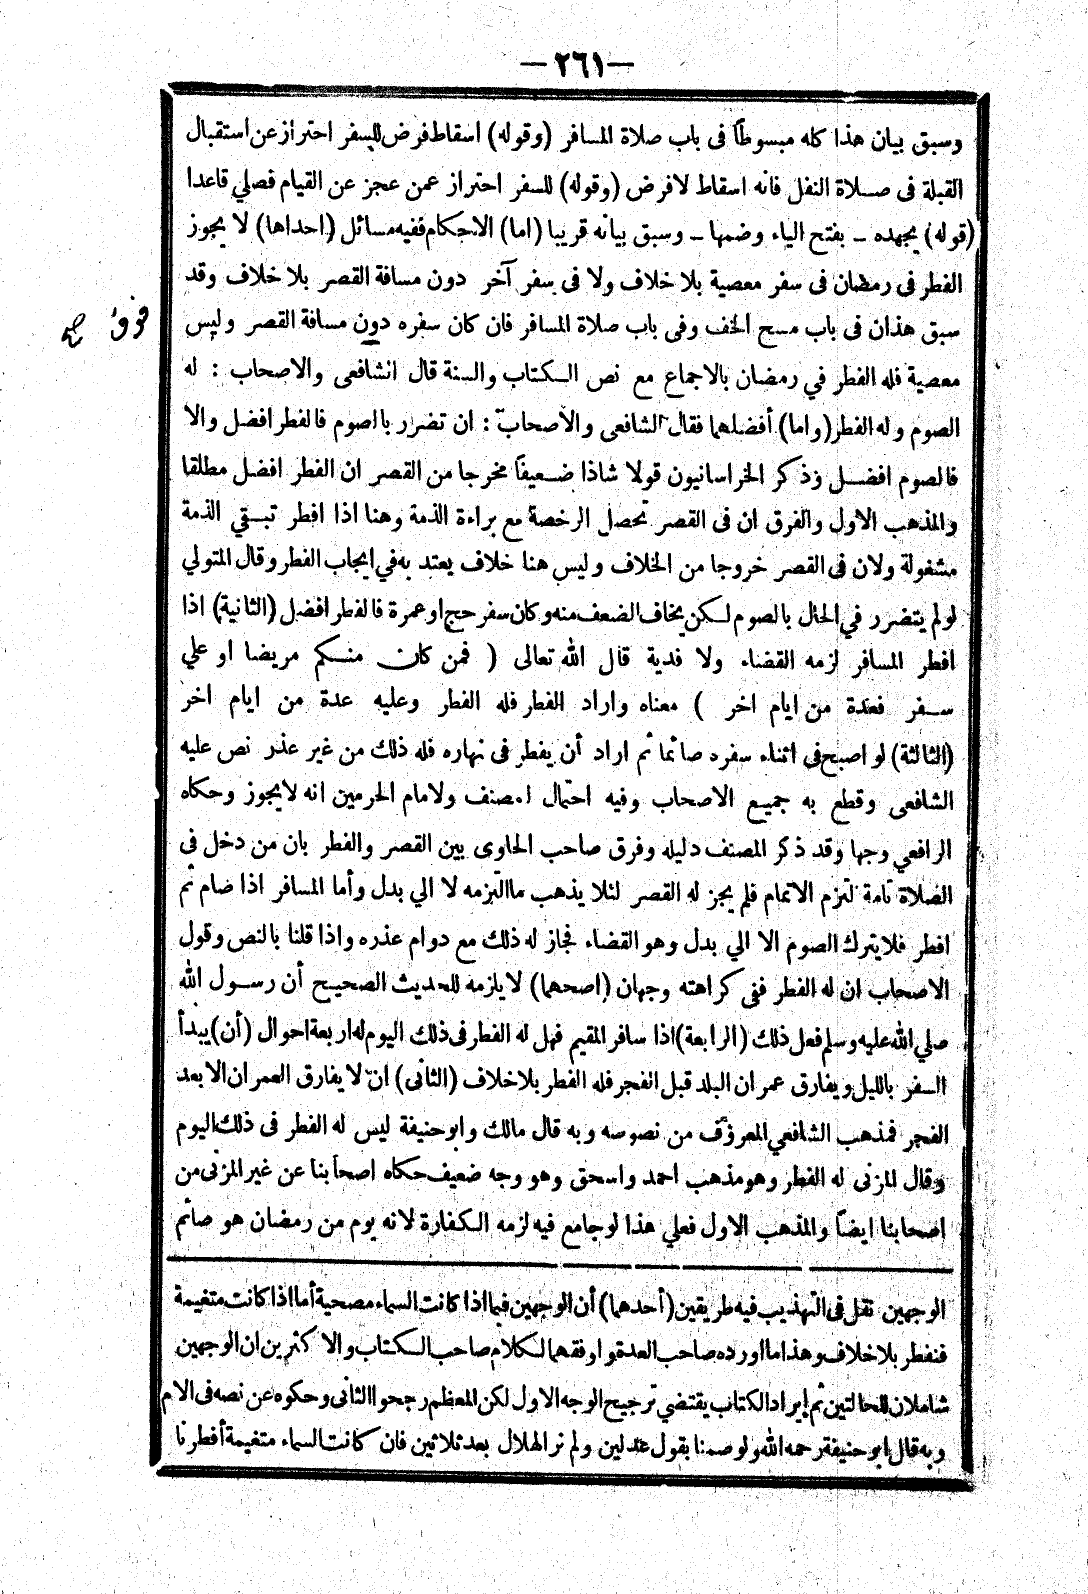 — ٢٦١ —
وسبق بيان هذا كله مبسوطا فى باب صلاة المسافر (وقوله) اسقاط فرض للسفر احتراز عن استقبال
القبلة فى صلاة النفل فانه اسقاط لا فرض (وقوله) للسفر احتراز عمن عجز عن القيام فصلي قاعدا
(قوله) يجهده ـ بفتح الياء وضمها ـ وسبق بيانه قريبا (اما) الاحكام ففيه مسائل (احداها) لا يجوز
الفطر فى رمضان فى سفر معصية بلا خلاف ولا فى سفر آخر دون مسافة القصر بلا خلاف وقد
سبق هذان فى باب مسح الخف وفى باب صلاة المسافر فان كان سفره دون مسافة القصر وليس
فوق صح
معصية فله الفطر في رمضان بالاجماع مع نص الكتاب والسنة قال الشافعى والاصحاب : له
الصوم وله الفطر (واما) أفضلهما فقال الشافعى والأصحاب : ان تضرر بالصوم فالفطر افضل والا
فالصوم افضل وذكر الخراسانيون قولا شاذا ضعيفا مخرجا من القصر ان الفطر افضل مطلقا
والمذهب الاول والفرق ان فى القصر تحصل الرخصة مع براءة الذمة وهنا اذا افطر تبقي الذمة
مشغولة ولان فى القصر خروجا من الخلاف وليس هنا خلاف يعتد به في ايجاب الفطر وقال المتولي
لو لم يتضرر في الحال بالصوم لكن يخاف الضعف منه وكان سفر حج او عمرة فالفطر افضل (الثانية) اذا
افطر المسافر لزمه القضاء ولا فدية قال الله تعالى ( فمن كان منكم مريضا او علي
سفر فعدة من ايام اخر ) معناه واراد الفطر فله الفطر وعليه عدة من ايام اخر
(الثالثة) لو اصبح فى اثناء سفره صائما ثم اراد أن يفطر فى نهاره فله ذلك من غير عذر نص عليه
الشافعى وقطع به جميع الاصحاب وفيه احتمال لمصنف ولامام الحرمين انه لا يجوز وحكاه
الرافعي وجها وقد ذكر المصنف دليله وفرق صاحب الحاوى بين القصر والفطر بان من دخل فى
الصلاة تامة التزم الاتمام فلم يجز له القصر لئلا يذهب ما التزمه لا الي بدل وأما المسافر اذا صام ثم
افطر فلا يترك الصوم الا الي بدل وهو القضاء فجاز له ذلك مع دوام عذره واذا قلنا بالنص وقول
الاصحاب ان له الفطر ففى كراهته وجهان (اصحهما) لا يلزمه للحديث الصحيح أن رسول الله
صلي الله عليه وسلم فعل ذلك (الرابعة) اذا سافر المقيم فهل له الفطر فى ذلك اليوم له اربعة احوال (أن) يبدأ
السفر بالليل ويفارق عمران البلد قبل الفجر فله الفطر بلا خلاف (الثانى) ان لا يفارق العمران الا بعد
الفجر فمذهب الشافعي المعروف من نصوصه وبه قال مالك وابوحنيفة ليس له الفطر فى ذلك اليوم
وقال المزنى له الفطر وهو مذهب احمد واسحق وهو وجه ضعيف حكاه اصحابنا عن غير المزنى من
اصحابنا ايضا والمذهب الاول فعلي هذا لو جامع فيه لزمه الكفارة لانه يوم من رمضان هو صائم
الوجهين نقل فى التهذيب فيه طريقين (أحدهما) أن الوجهين فيما اذا كانت السماء مصحية أما اذا كانت متغيمة
فنفطر بلا خلاف وهذا ما اورده صاحب العدة و اوفقهما لكلام صاحب الكتاب والاكثرين ان الوجهين
شاملان للحالتين ثم إيراد الكتاب يقتضي ترجيح الوجه الاول لكن المعظم رجحوا الثانى وحكوه عن نصه فى الام
وبه قال ابوحنيفة رحمه الله ولو صمنا بقول عدلين ولم نر الهلال بعد ثلاثين فان كانت السماء متغيمة أفطرنا